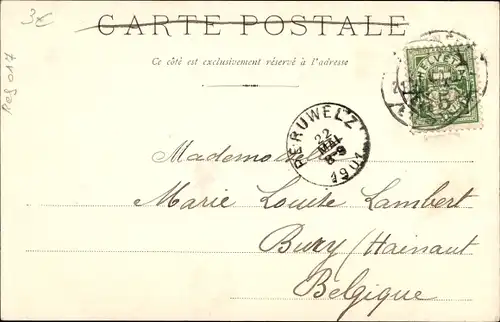 3€
CARTE POSTALE
Ce côté est exclusivement réservé à l'adresse
Reg 017
HELVETIA
PERUWELZ
22
MAI
8-9
1901
Mademoiselle
Marie Louise Lambert
Bury (Hainaut
Belgique